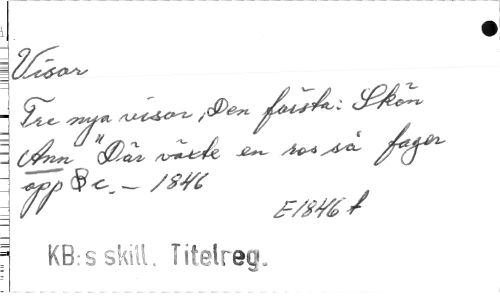 Visor
Tre nya visor, Den första: Skön
Ann "Där växte en ros så fager
opp &c. – 1846
E1846 f
KB:s skill. Titelreg.